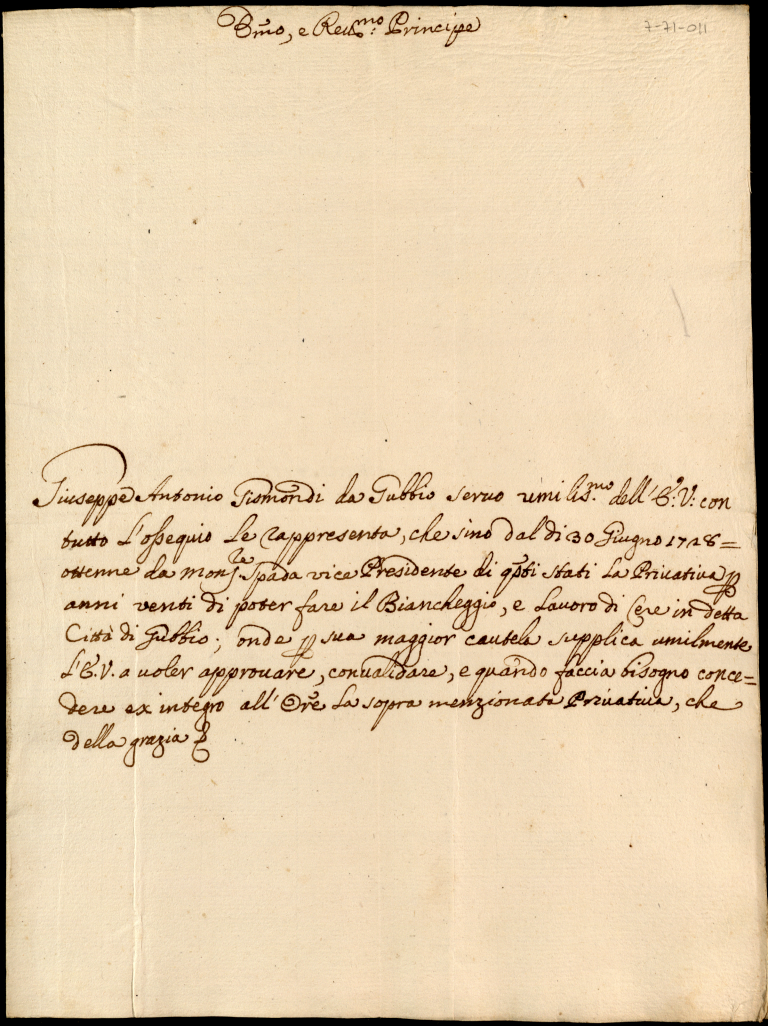 Emo, e Reumo: Principe
7-71-011
Giuseppe Antonio Gismondi da Gubbio seruo umilis.mo dell'E:V: con
tutto L'ossequio Le rappresenta, che sino dal di 30 Giugno 1728=
ottenne da monsre. Spada vice Presidente di qsti stati La Priuatiua p
anni venti di poter fare il Biancheggio, e Lauoro di Cere in detta
Città di Gubbio; onde p sua maggior cautela supplica umilmente
L'E.V. a uoler approuare, conualidare, e quando faccia bisogno conce=
dere ex integro all'Ore La sopra menzionata Priuatiua, che
della grazia &